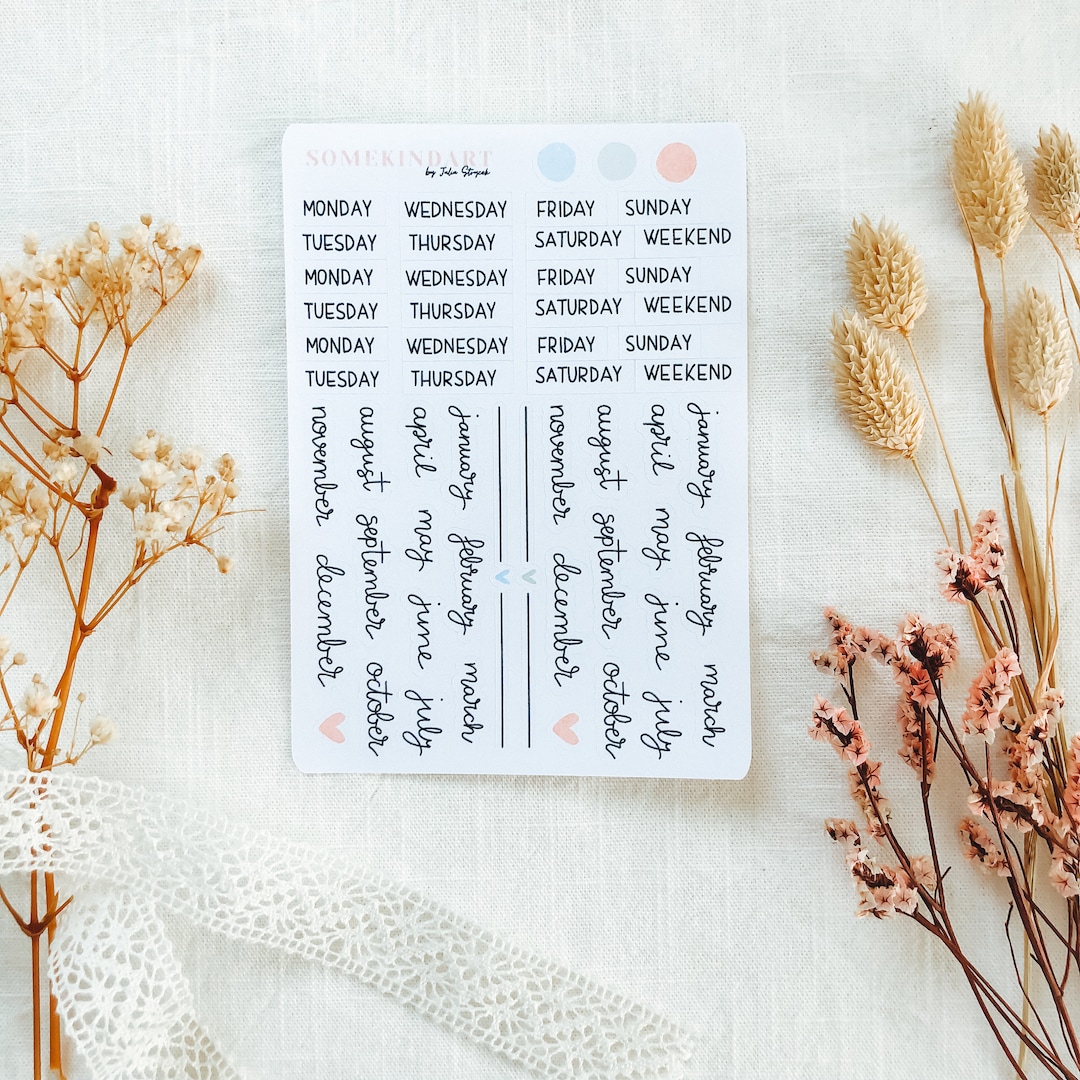 SOMEKINDART
by Julia Strojcek
MONDAY WEDNESDAY FRIDAY SUNDAY
TUESDAY THURSDAY SATURDAY WEEKEND
MONDAY WEDNESDAY FRIDAY SUNDAY
TUESDAY THURSDAY SATURDAY WEEKEND
MONDAY WEDNESDAY FRIDAY SUNDAY
TUESDAY THURSDAY SATURDAY WEEKEND
january february march
april may june july
august september october
november december
january february march
april may june july
august september october
november december